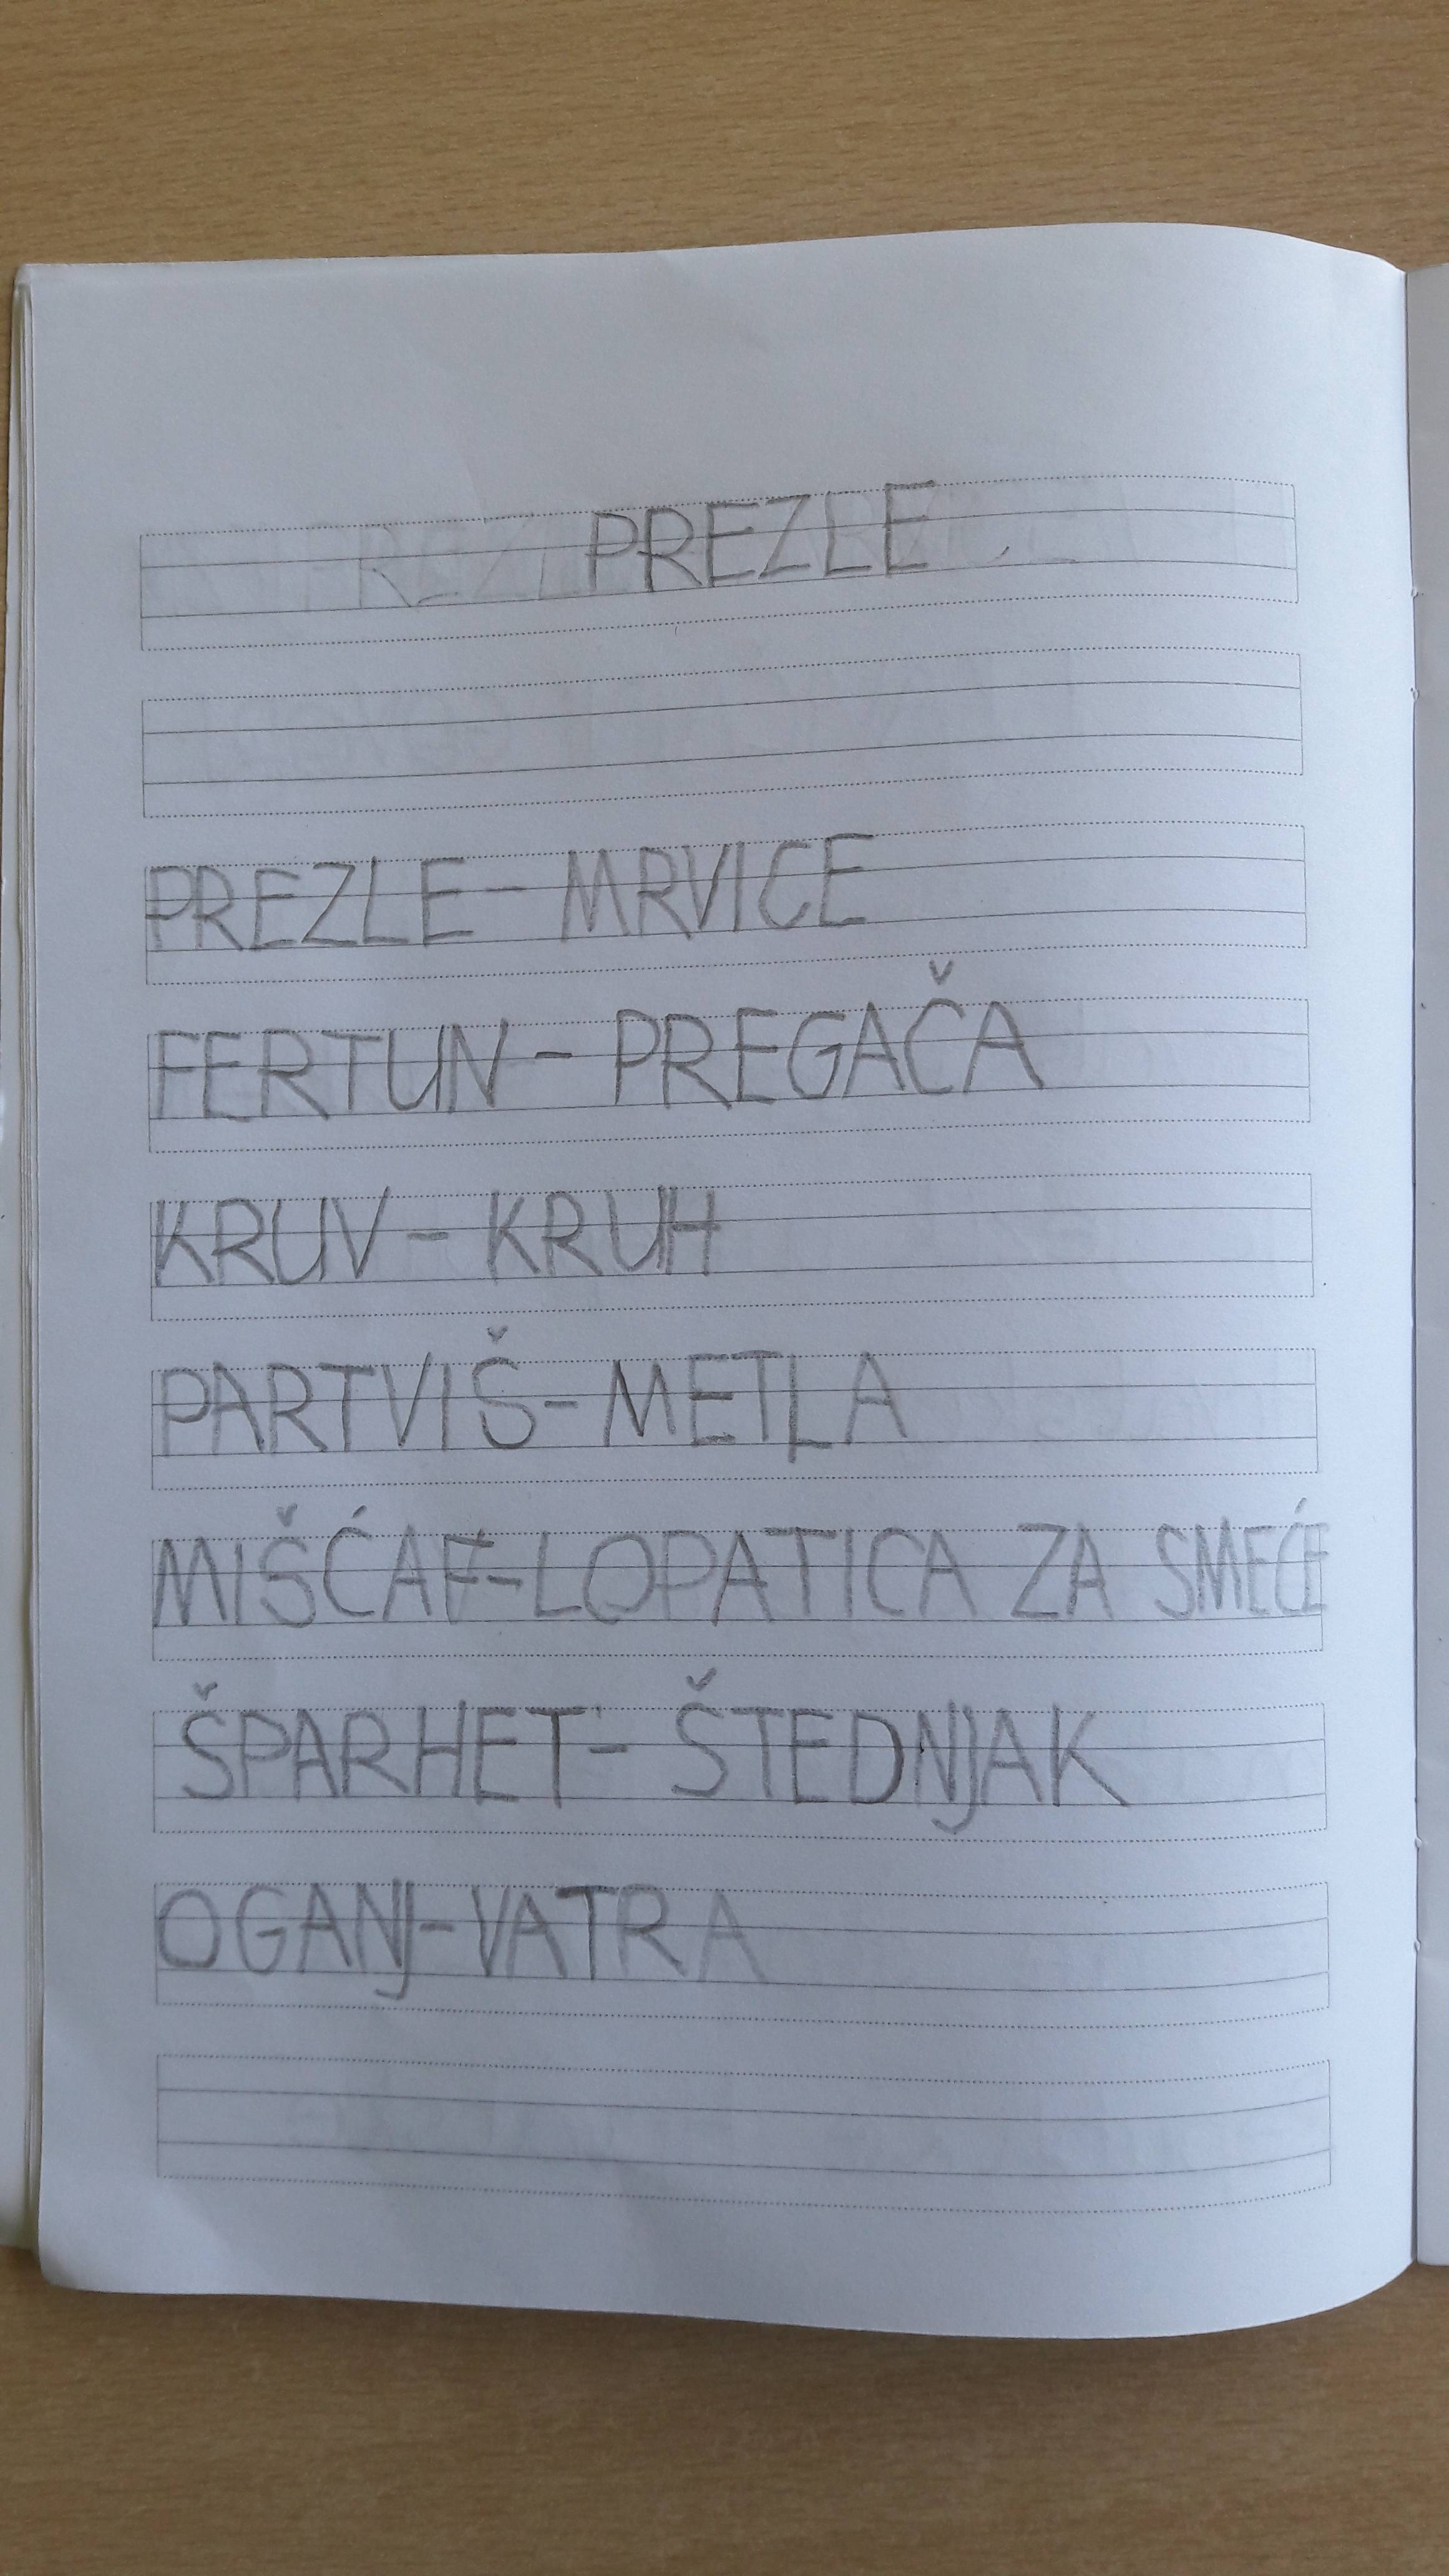 PREZLE
PREZLE - MRVICE
FERTUN - PREGAČA
KRUV - KRUH
PARTVIŠ - METLA
MIŠĆAF - LOPATICA ZA SMEĆE
ŠPARHET - ŠTEDNJAK
OGANJ - VATRA